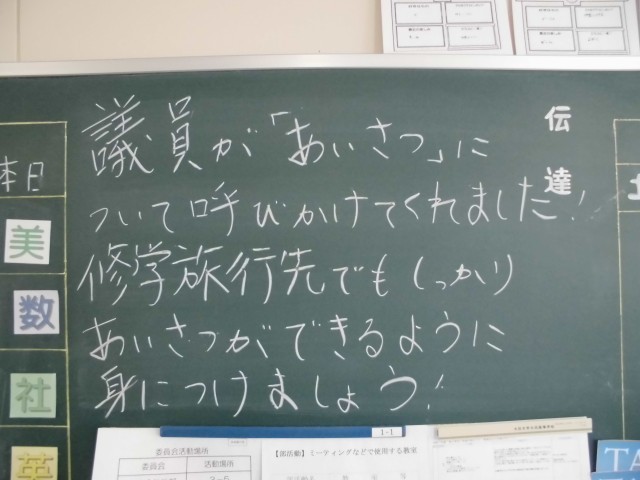 議員が「あいさつ」に
ついて呼びかけてくれました!
修学旅行先でもしっかり
あいさつができるように
身につけましょう!
伝達
本日
美
数
社
英
1-1
委員会活動場所
委員会
活動場所
【部活動】ミーティングなどで使用する教室
TA